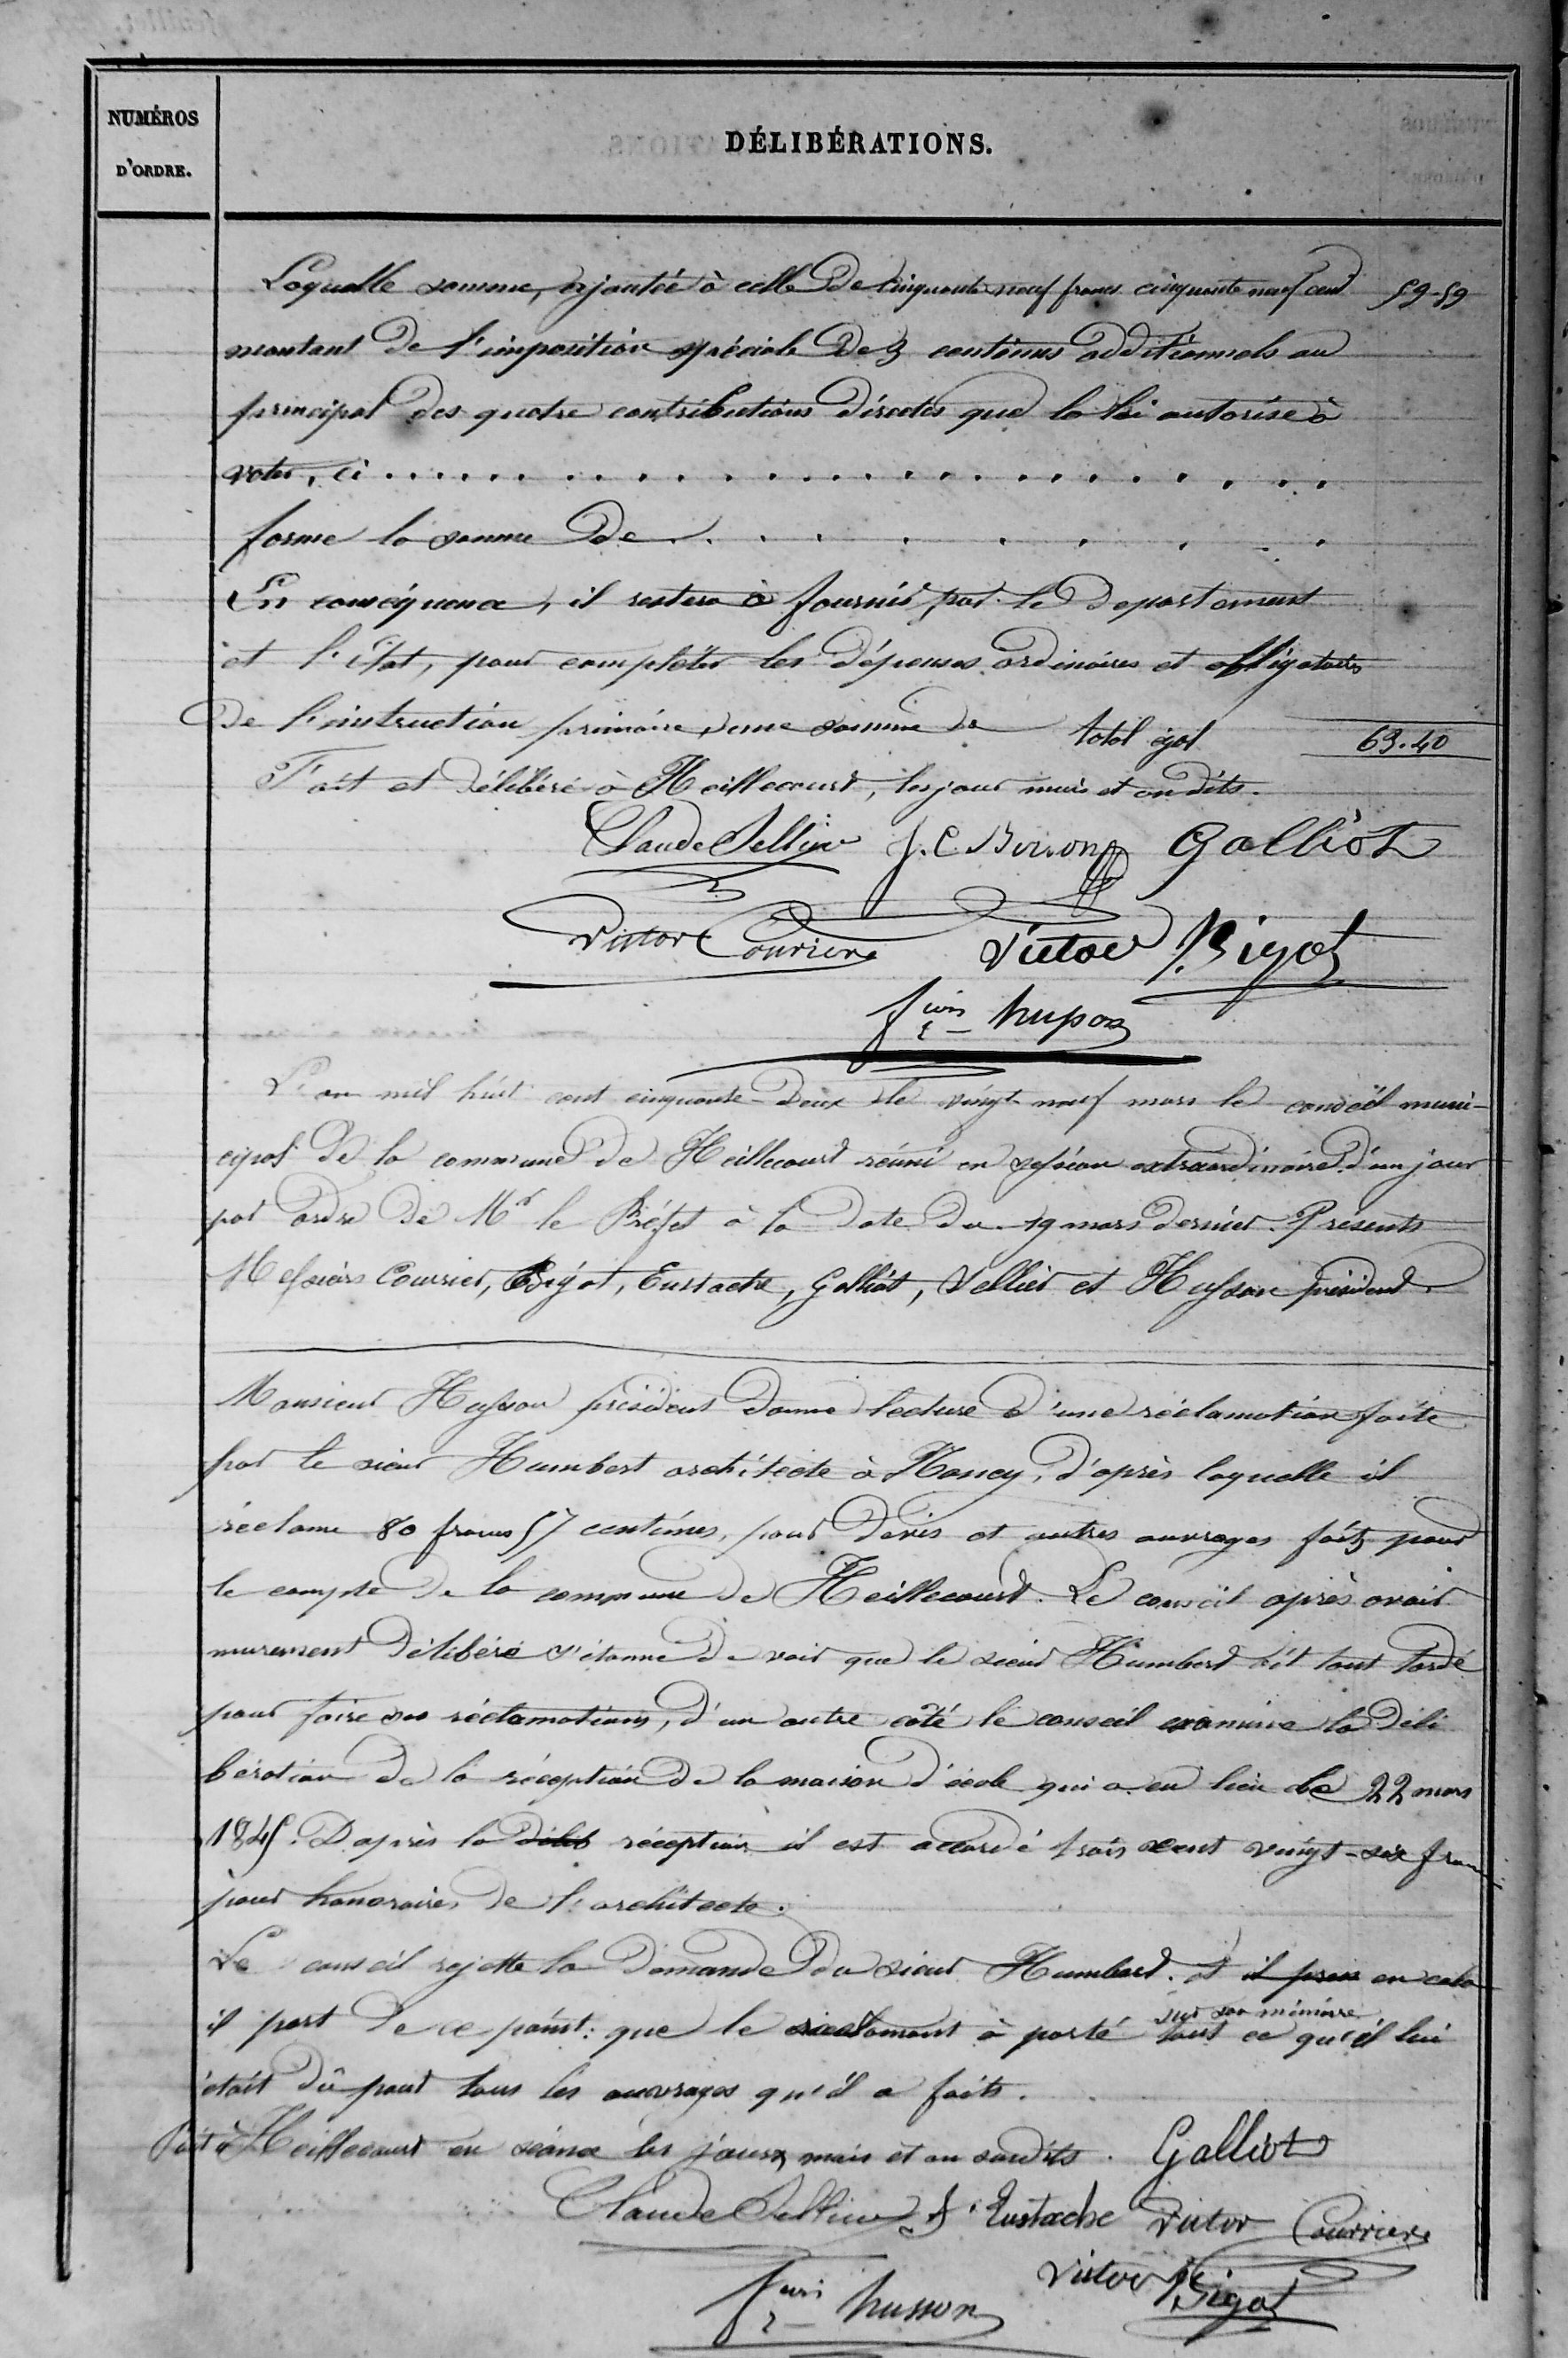 NUMÉROS
D'ORDRE.
DÉLIBÉRATIONS.
Laquelle somme, ajoutée à celle de Cinquante neuf francs cinquante neuf cent 59-59
montant de l'imposition spéciale de 3 centimes additionnels au
principal des quatre contributions directes que la loi autorise à
voter, ci . . . . . . . . . . . . . . . . . . . . . .
forme la somme de . . . . . . . .
En conséquence, il restera à fournir par le département
et l'état, pour compléter les dépenses ordinaires et obligatoires
de l'instruction primaire, une somme de total égal 69.40
Fait et délibéré à Heillecourt, les jour mois et an dits.
Claude Sellier J. C. Boison Galliot
Victor Courrier Victor Bigot
fois husson
L'an mil huit cent cinquante-deux le vingt-neuf mars le conseil muni-
cipal de la commune de Heillecourt réuni en session extraordinaire d'un jour
par ordre de Mr le Préfet à la date du 19 mars dernier. Présents
Messieurs Courrier, Bigot, Eustache, Galliot, Sellier et Husson président.
Monsieur Husson président donne lecture d'une réclamation faite
par le sieur Humbert architecte à Nancy, d'après laquelle il
réclame 80 francs 57 centimes, pour devis et autres ouvrages faits pour
le compte de la commune de Heillecourt. Le conseil après avoir
murement délibéré s'étonne de voir que le sieur Humbert ait tant tardé
pour faire ses réclamations, d'un autre coté le conseil examine la déli
bération de la réception de la maison d'école qui a eu lieu le 22 mars
1845. D'après la délib réception il est accordé trois cent vingt-six francs
pour honoraires de l'architecte.
Le conseil rejette la demande du sieur Humbert. et il pren en cela
il part de ce point: que le réclamant à porté sur son mémoire tout ce qu'il lui
était dû pour tous les ouvrages qu'il a faits.
Fait à Heillecourt en séance les jours, mois et an susdits. Galliot
Claude Sellier Eustache Victor Courrier
Victor Bigot
fois husson